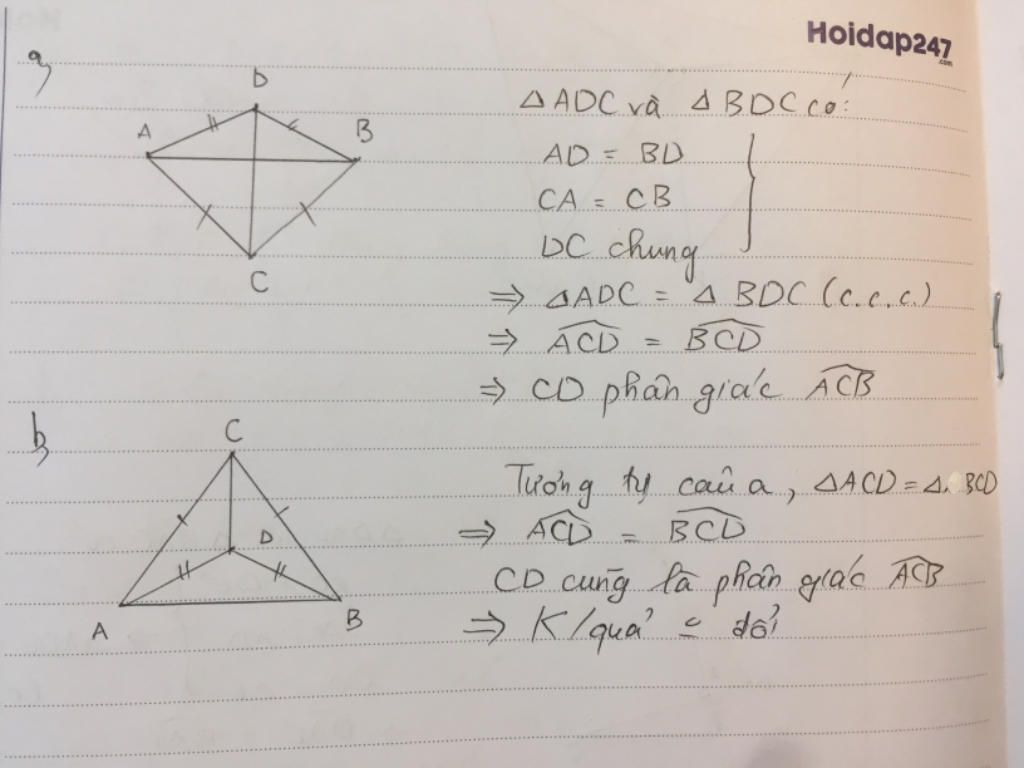 Hoidap247
.com
a)
D
A
B
C
△ADC và △BDC có:
AD = BD
CA = CB
DC chung
⇒ △ADC = △BDC (c.c.c.)
⇒ \widehat{ACD} = \widehat{BCD}
⇒ CD phân giác \widehat{ACB}
b)
C
D
A
B
Tương tự câu a, △ACD = △BCD
⇒ \widehat{ACD} = \widehat{BCD}
CD cũng là phân giác \widehat{ACB}
⇒ K/quả đổi